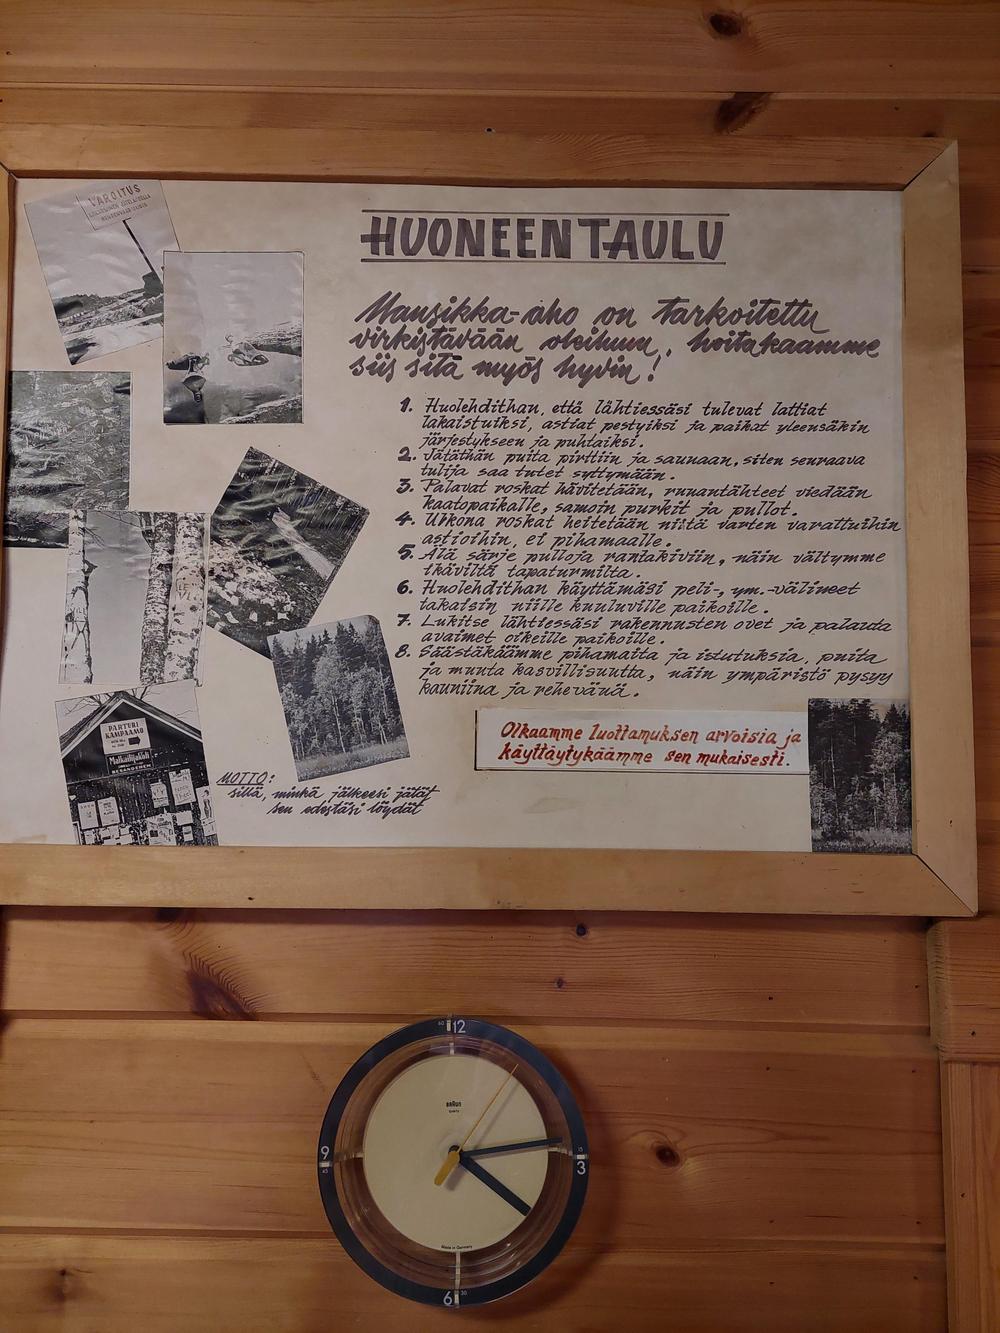 VAROITUS
HUONEENTAULU
Mansikka-aho on tarkoitettu
virkistävään oleiluun, hoitakaamme
siis sitä myös hyvin!
1. Huolehdithan, että lähtiessäsi tulevat lattiat
lakaistuiksi, astiat pestyiksi ja paikat yleensäkin
järjestykseen ja puhtaiksi.
2. Jätäthän puita pirttiin ja saunaan, siten seuraava
tulija saa tulet syttymään.
3. Palavat roskat hävitetään, ruuantähteet viedään
kaatopaikalle, samoin purkit ja pullot.
4. Ulkona roskat heitetään niitä varten varattuihin
astioihin, ei pihamaalle.
5. Älä särje pulloja rantakiviin, näin vältymme
ikäviltä tapaturmilta.
6. Huolehdithan käyttämäsi peli-, ym.-välineet
takaisin niille kuuluville paikoille.
7. Lukitse lähtiessäsi rakennusten ovet ja palauta
avaimet oikeille paikoille.
8. Säästäkäämme pihamaita ja istutuksia, puita
ja muuta kasvillisuutta, näin ympäristö pysyy
kauniina ja rehevänä.
Olkaamme luottamuksen arvoisia ja
käyttäytykäämme sen mukaisesti.
PARTURI
KAMPAAMO
Matkailijakoti
MOTTO:
sillä, minkä jälkeesi jätät
sen edestäsi löydät
60 12
BRAUN
quartz
9
45
15
3
Made in Germany
6 30